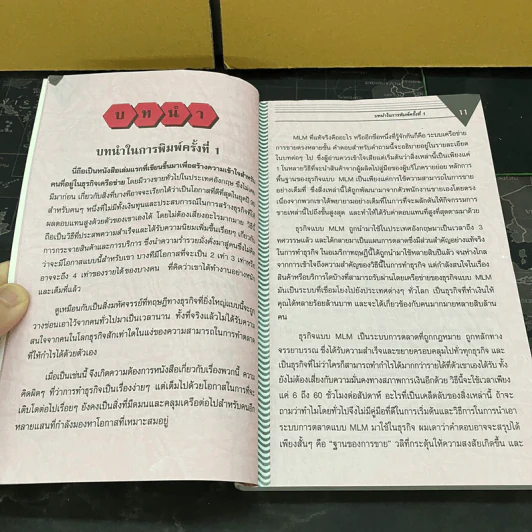 บทนำ
บทนำในการพิมพ์ครั้งที่ 1
นี่ถือเป็นหนังสือเล่มแรกที่เขียนขึ้นมาเพื่อสร้างความเข้าใจสำหรับ
คนที่อยู่ในธุรกิจเครือข่าย โดยมีวางขายทั่วไปในประเทศอังกฤษ
มีมาก่อน เกี่ยวกับสิ่งที่บางทีอาจจะเรียกได้ว่าเป็นโอกาสที่ดีที่สุดในยุคปี
สำหรับคนๆ หนึ่งที่ไม่มีทั้งเงินทุนและประสบการณ์ในการสร้างธุรกิจที่ให้
ผลตอบแทนสูงด้วยตัวของเขาเองได้ โดยไม่ต้องเสี่ยงอะไรมากมาย
ถือเป็นวิธีที่ประสพความสำเร็จและได้รับความนิยมเพิ่มขึ้นเรื่อยๆ
การกระจายสินค้าและการบริการ ซึ่งนำความร่ำรวยมั่งคั่งมาสู่คน
ว่าจะมีโอกาสแบบนี้สำหรับเรา บางทีมีโอกาสที่จะเป็น 2 เท่า 3 เท่าหรือ
อาจจะถึง 4 เท่าของรายได้ของบางคน ที่คิดว่าเขาได้ทำงานอย่างหนัก
และเต็มที่แล้ว
ดูเหมือนกับเป็นสิ่งมหัศจรรย์ที่ทฤษฎีทางธุรกิจที่ยิ่งใหญ่แบบนี้จะถูก
วางซ่อนเอาไว้จากคนทั่วไปมาเป็นเวลานาน ทั้งที่จริงแล้วไม่ได้รับความ
สนใจจากคนในโลกธุรกิจสักเท่าใดในแง่ของความสามารถในการทำตลาด
ที่ให้กำไรได้ด้วยตัวเอง
เมื่อเป็นเช่นนี้ จึงเกิดความต้องการหนังสือเกี่ยวกับเรื่องพวกนี้ ความ
คิดผิดๆ ที่ว่าการทำธุรกิจเป็นเรื่องง่ายๆ แต่เต็มไปด้วยโอกาสในการที่จะ
เติบโตต่อไปเรื่อยๆ ยังคงเป็นสิ่งที่มืดมนและคลุมเครือต่อไปสำหรับคนอีก
หลายแสนที่กำลังมองหาโอกาสที่เหมาะสมอยู่
บทนำในการพิมพ์ครั้งที่ 1 11
MLM ที่แท้จริงคืออะไร หรืออีกชื่อหนึ่งที่รู้จักกันก็คือ ระบบเครือข่าย
การขายตรงหลายชั้น คำตอบสำหรับคำถามนี้จะอธิบายอยู่ในรายละเอียด
ในบทต่อๆ ไป ซึ่งผู้อ่านควรเข้าใจเสียแต่เริ่มต้นว่าสิ่งเหล่านี้เป็นเพียงแค่
1 ในหลายวิธีที่จะนำสินค้าจากผู้ผลิตไปสู่มือของผู้บริโภครายย่อย หลักการ
พื้นฐานของธุรกิจแบบ MLM เป็นเพียงแค่การใช้ความสามารถในการขาย
อย่างเต็มที่ ซึ่งสิ่งเหล่านี้ได้ถูกพัฒนามาจากตัวพนักงานขายเองโดยตรง
เนื่องจากพวกเขาได้พยายามอย่างเต็มที่ในการที่จะผลักดันให้กิจกรรมการ
ขายเหล่านี้ไปถึงขั้นสูงสุด และทำให้ได้รับค่าตอบแทนที่สูงที่สุดตามมาด้วย
ธุรกิจแบบ MLM ถูกนำมาใช้ในประเทศอังกฤษมาเป็นเวลาถึง 3
ทศวรรษแล้ว และได้กลายมาเป็นแผนการตลาดซึ่งมีส่วนสำคัญอย่างแท้จริง
ในการทำธุรกิจ ในอเมริกาทฤษฎีนี้ได้ถูกนำมาใช้หลายสิบปีแล้ว จนห่างไกล
จากการเข้าใจถึงความสำคัญของวิธีนี้ในการทำธุรกิจ แต่กำลังสนใจในเรื่อง
สินค้าหรือบริการใดบ้างที่สามารถรับผ่านโดยเครือข่ายของธุรกิจแบบ MLM
มันเป็นระบบที่เชื่อมโยงไปยังประเทศต่างๆ ทั่วโลก เป็นธุรกิจที่ทำเงินให้
คุณได้หลายร้อยล้านบาท และจะได้เกี่ยวข้องกับคนมากมายหลายสิบล้าน
คน
ธุรกิจแบบ MLM เป็นระบบการตลาดที่ถูกกฎหมาย ถูกหลักทาง
จรรยาบรรณ ซึ่งได้รับความสำเร็จและขยายครอบคลุมไปทั่วทุกธุรกิจ และ
เป็นธุรกิจที่ไม่ว่าใครก็สามารถทำกำไรได้มากกว่ารายได้ที่ตัวเขาเองได้รับ ทั้ง
ยังไม่ต้องเสี่ยงกับความมั่นคงทางสภาพการเงินอีกด้วย วิธีนี้จะใช้เวลาเพียง
แค่ 6 ถึง 60 ชั่วโมงต่อสัปดาห์ อะไรที่เป็นเคล็ดลับของสิ่งเหล่านี้ ถ้าจะ
ถามว่าทำไมโดยทั่วไปจึงไม่มีคู่มือที่ดีในการเริ่มต้นและวิธีการในการนำเอา
ระบบการตลาดแบบ MLM มาใช้ในธุรกิจ ผมเดาว่าคำตอบอาจจะสรุปได้
เพียงสั้นๆ คือ "ฐานของการขาย" วลีที่กระตุ้นให้ความสงสัยเกิดขึ้น และ